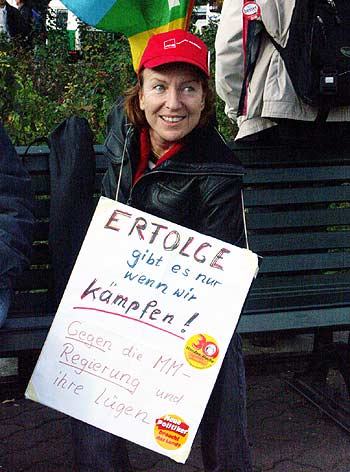 ERFOLGE
gibt es nur
wenn wir
kämpfen!
Gegen die MM-
Regierung und
ihre Lügen
30
Neue
Politiker
braucht
das Land